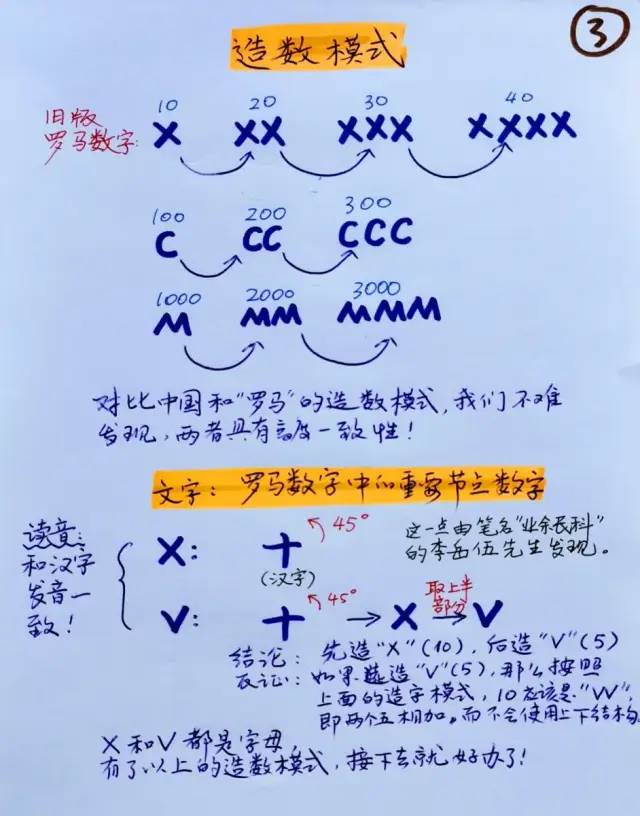 ③
造数模式
旧版
罗马数字:
10 20 30 40
X XX XXX XXXX
100 200 300
C CC CCC
1000 2000 3000
M MM MMM
对比中国和"罗马"的造数模式,我们不难
发现,两者具有高度一致性!
文字: 罗马数字中的重要节点数字
读音:
和汉字
发音一
致!
X: 十 45°
(汉字)
这一点由笔名"业余民科"
的李岳伍先生发现。
V: 十 45° → X 取上半
部分 → V
结论: 先造"X"(10), 后造"V"(5)
反证: 如果先造"V"(5), 那么按照
上面的造字模式, 10应该是"VV",
即两个五相加。而不会使用上下结构
X和V都是字母
有了以上的造数模式, 接下去就好办了!